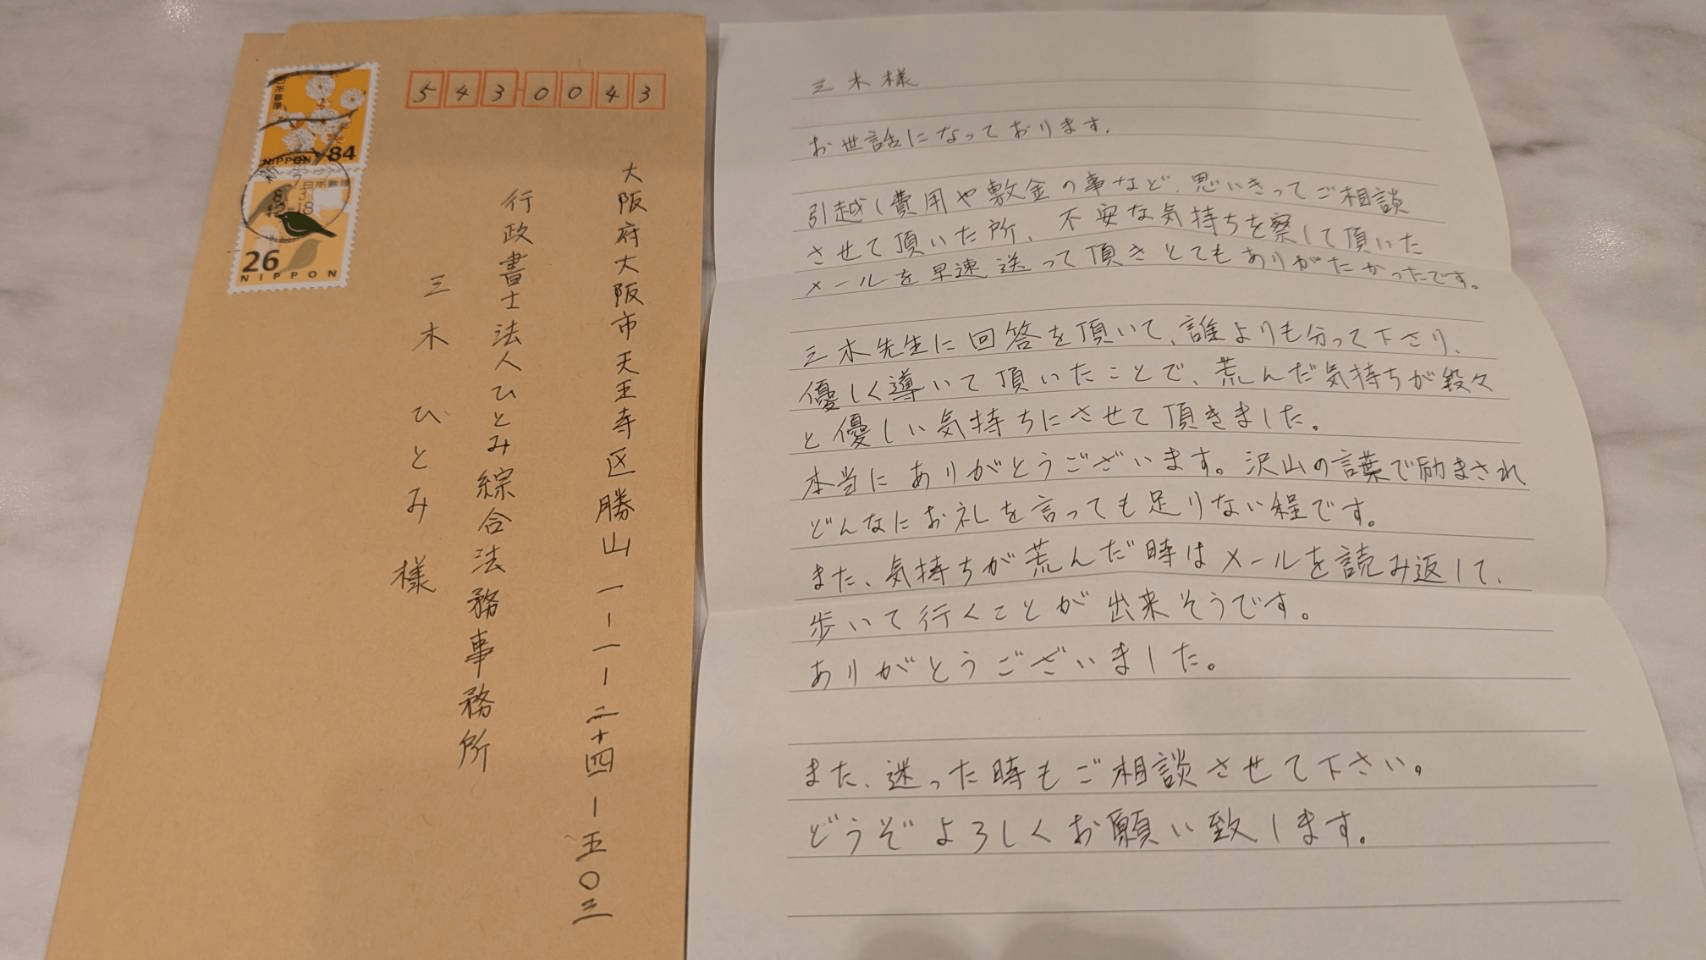 日本郵便
NIPPON 84
日本郵便
26
NIPPON
5430043
大阪府大阪市天王寺区勝山一-一-二十四-五〇三
行政書士法人ひとみ綜合法務事務所
三木ひとみ様
三木様
お世話になっております。
引越し費用や敷金の事など、思いきってご相談
させて頂いた所、不安な気持ちを察して頂いた
メールを早速送って頂きとてもありがたかったです。
三木先生に回答を頂いて、誰よりも分って下さり、
優しく導いて頂いたことで、荒んだ気持ちが段々
と優しい気持ちにさせて頂きました。
本当にありがとうございます。沢山の言葉で励まされ
どんなにお礼を言っても足りない程です。
また、気持ちが荒んだ時はメールを読み返して、
歩いて行くことが出来そうです。
ありがとうございました。
また、迷った時もご相談させて下さい。
どうぞよろしくお願い致します。